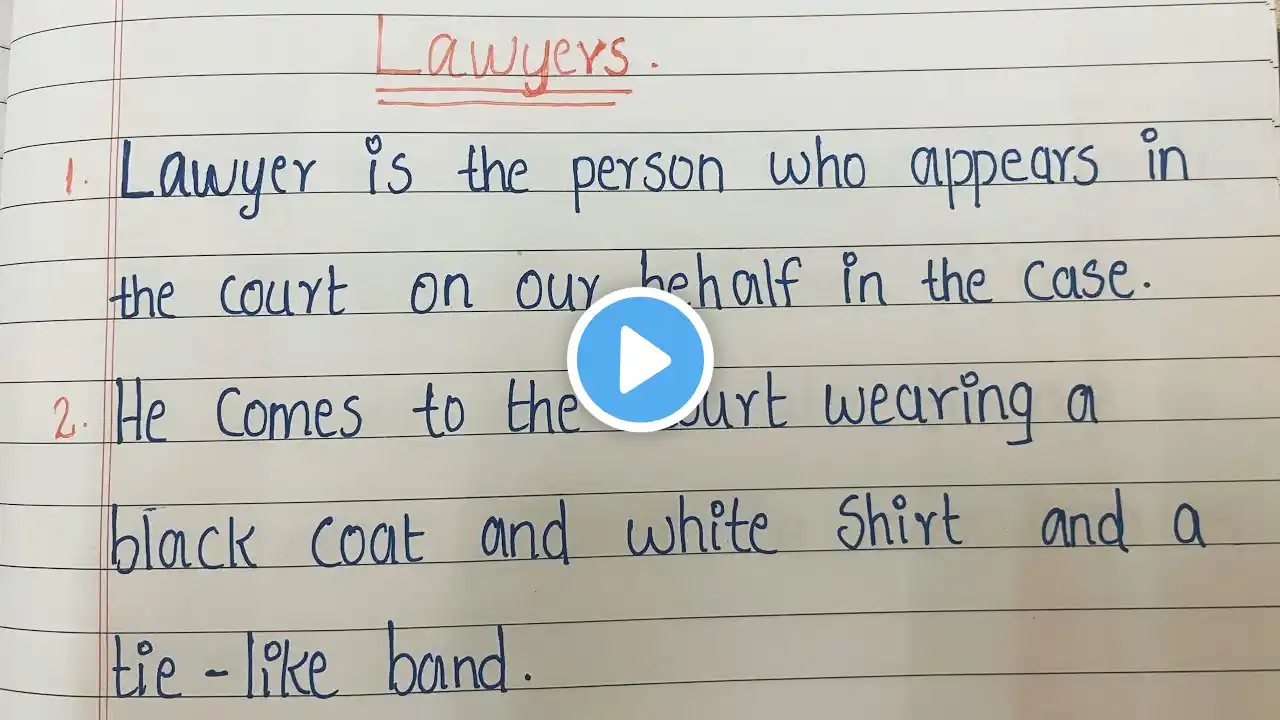 Lawyers.
1. Lawyer is the person who appears in
the court on our behalf in the case.
2. He comes to the court wearing a
black coat and white shirt and a
tie-like band.